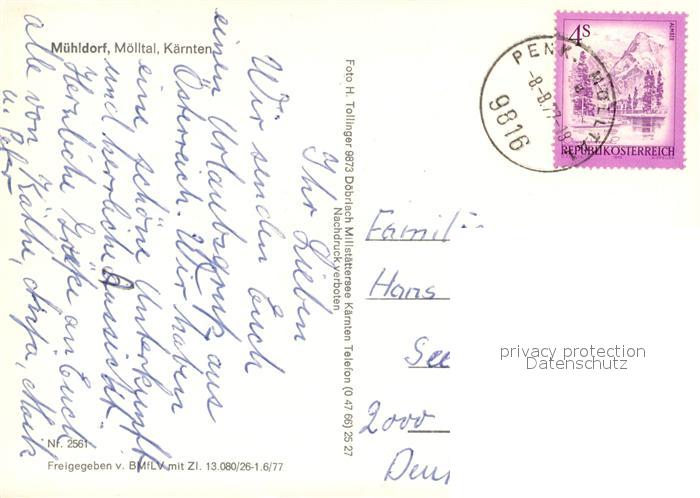 Mühldorf, Mölltal, Kärnten
Ihr Lieben
Wir senden Euch
einen Urlaubsgruß aus
Österreich. Wir haben
eine schöne Unterkunft
und herrliche Aussicht.
Herzliche Grüße an Euch
alle von Käthe, Maik
u. Peter
Nr. 2561
Freigegeben v. BMfLV mit Zl. 13.080/26-1.6/77
Foto H. Tollinger 9873 Döbriach Millstättersee Kärnten Telefon (0 47 66) 25 27
Nachdruck verboten
PENK, MÖLLTAL
-8.-8.77-18
9816
4S
ALMSEE
REPUBLIK ÖSTERREICH
Famili
Hans
See
2000
Deu
privacy protection
Datenschutz